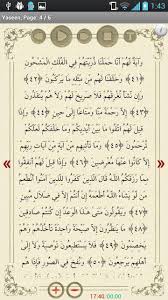 1:43
Yaseen, Page: 4 / 6
وَآيَةٌ لَهُمْ أَنَّا حَمَلْنَا ذُرِّيَّتَهُمْ فِي الْفُلْكِ الْمَشْحُونِ
﴿٤١﴾ وَخَلَقْنَا لَهُمْ مِنْ مِثْلِهِ مَا يَرْكَبُونَ ﴿٤٢﴾
وَإِنْ نَشَأْ نُغْرِقْهُمْ فَلَا صَرِيخَ لَهُمْ وَلَا هُمْ يُنْقَذُونَ
﴿٤٣﴾ إِلَّا رَحْمَةً مِنَّا وَمَتَاعًا إِلَى حِينٍ ﴿٤٤﴾ وَإِذَا
قِيلَ لَهُمُ اتَّقُوا مَا بَيْنَ أَيْدِيكُمْ وَمَا خَلْفَكُمْ لَعَلَّكُمْ
تُرْحَمُونَ ﴿٤٥﴾ وَمَا تَأْتِيهِمْ مِنْ آيَةٍ مِنْ آيَاتِ رَبِّهِمْ
إِلَّا كَانُوا عَنْهَا مُعْرِضِينَ ﴿٤٦﴾ وَإِذَا قِيلَ لَهُمْ أَنْفِقُوا
مِمَّا رَزَقَكُمُ اللَّهُ قَالَ الَّذِينَ كَفَرُوا لِلَّذِينَ آمَنُوا
أَنُطْعِمُ مَنْ لَوْ يَشَاءُ اللَّهُ أَطْعَمَهُ إِنْ أَنْتُمْ إِلَّا فِي
ضَلَالٍ مُبِينٍ ﴿٤٧﴾ وَيَقُولُونَ مَتَى هَذَا الْوَعْدُ إِنْ كُنْتُمْ صَادِقِينَ
﴿٤٨﴾ مَا يَنْظُرُونَ إِلَّا صَيْحَةً وَاحِدَةً تَأْخُذُهُمْ وَهُمْ
يَخِصِّمُونَ ﴿٤٩﴾ فَلَا يَسْتَطِيعُونَ تَوْصِيَةً وَلَا إِلَى
أَهْلِهِمْ يَرْجِعُونَ ﴿٥٠﴾
17:40/00:00